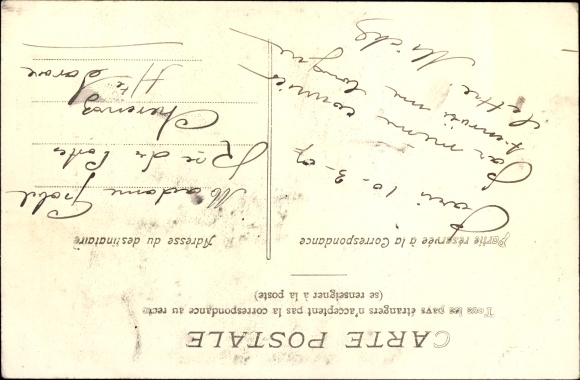 CARTE POSTALE
Tous les pays étrangers n'acceptent pas la correspondance au recto
(se renseigner à la poste)
Partie réservée à la Correspondance
Paris 10-3-07
Par même courrier
t'envoie une longue
lettre. Micky
Adresse du destinataire
Madame
Rue du Porte
Chevenoz
Hte Savoie